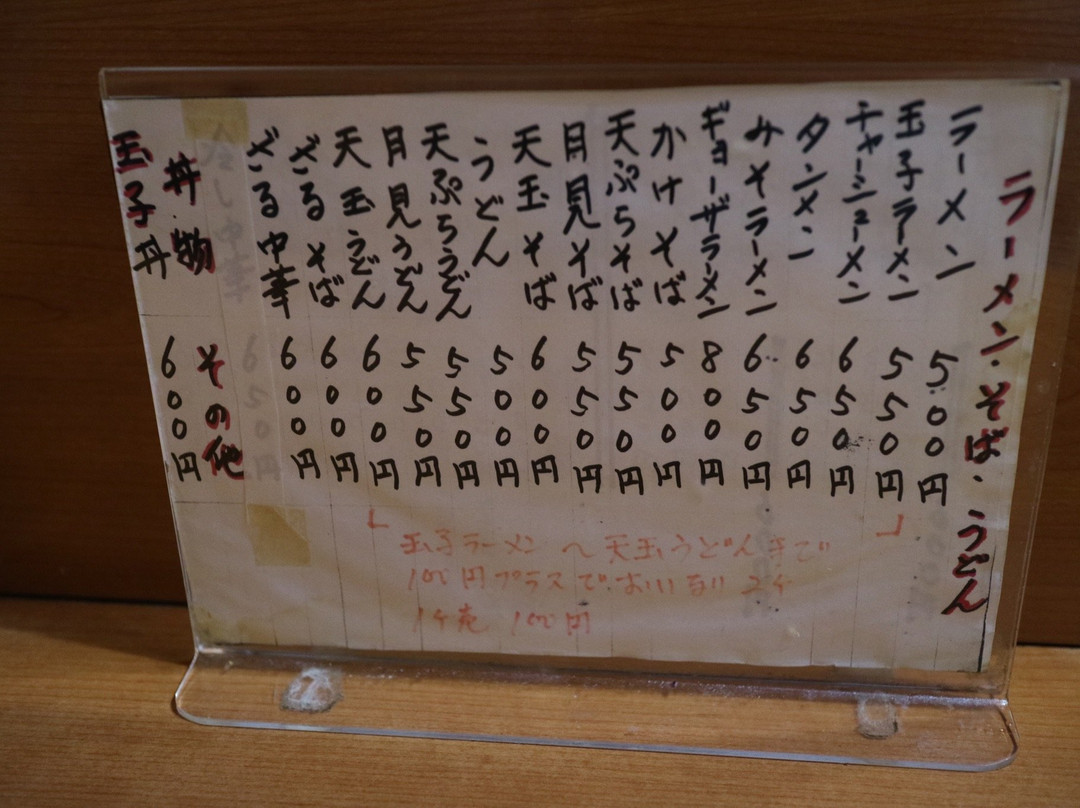 ラーメン・そば・うどん
ラーメン 500円
玉子ラーメン 550円
チャーシューメン 650円
タンメン 650円
みそラーメン 650円
ギョーザラーメン 800円
かけそば 500円
天ぷらそば 550円
月見そば 550円
天玉そば 600円
うどん 500円
天ぷらうどん 550円
月見うどん 550円
天玉うどん 600円
ざるそば 600円
ざる中華 600円
冷し中華 650円
丼物 その他
玉子丼 600円
玉子ラーメン〜天玉うどんまで
100円プラスでおいなり2ケ
1ケ売 100円